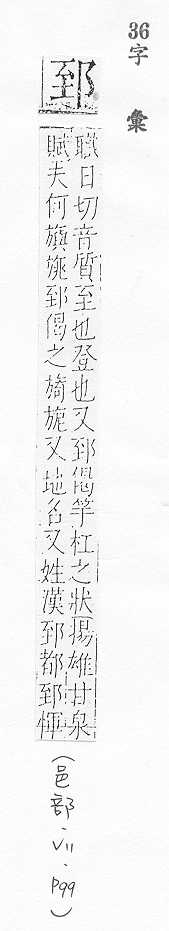 36字彙
郅
職日切音質至也登也又郅偈竿杠之狀揚雄甘泉
賦夫何旟旐郅偈之旖旎又地名又姓漢郅都郅惲
(邑部.VII.P99)